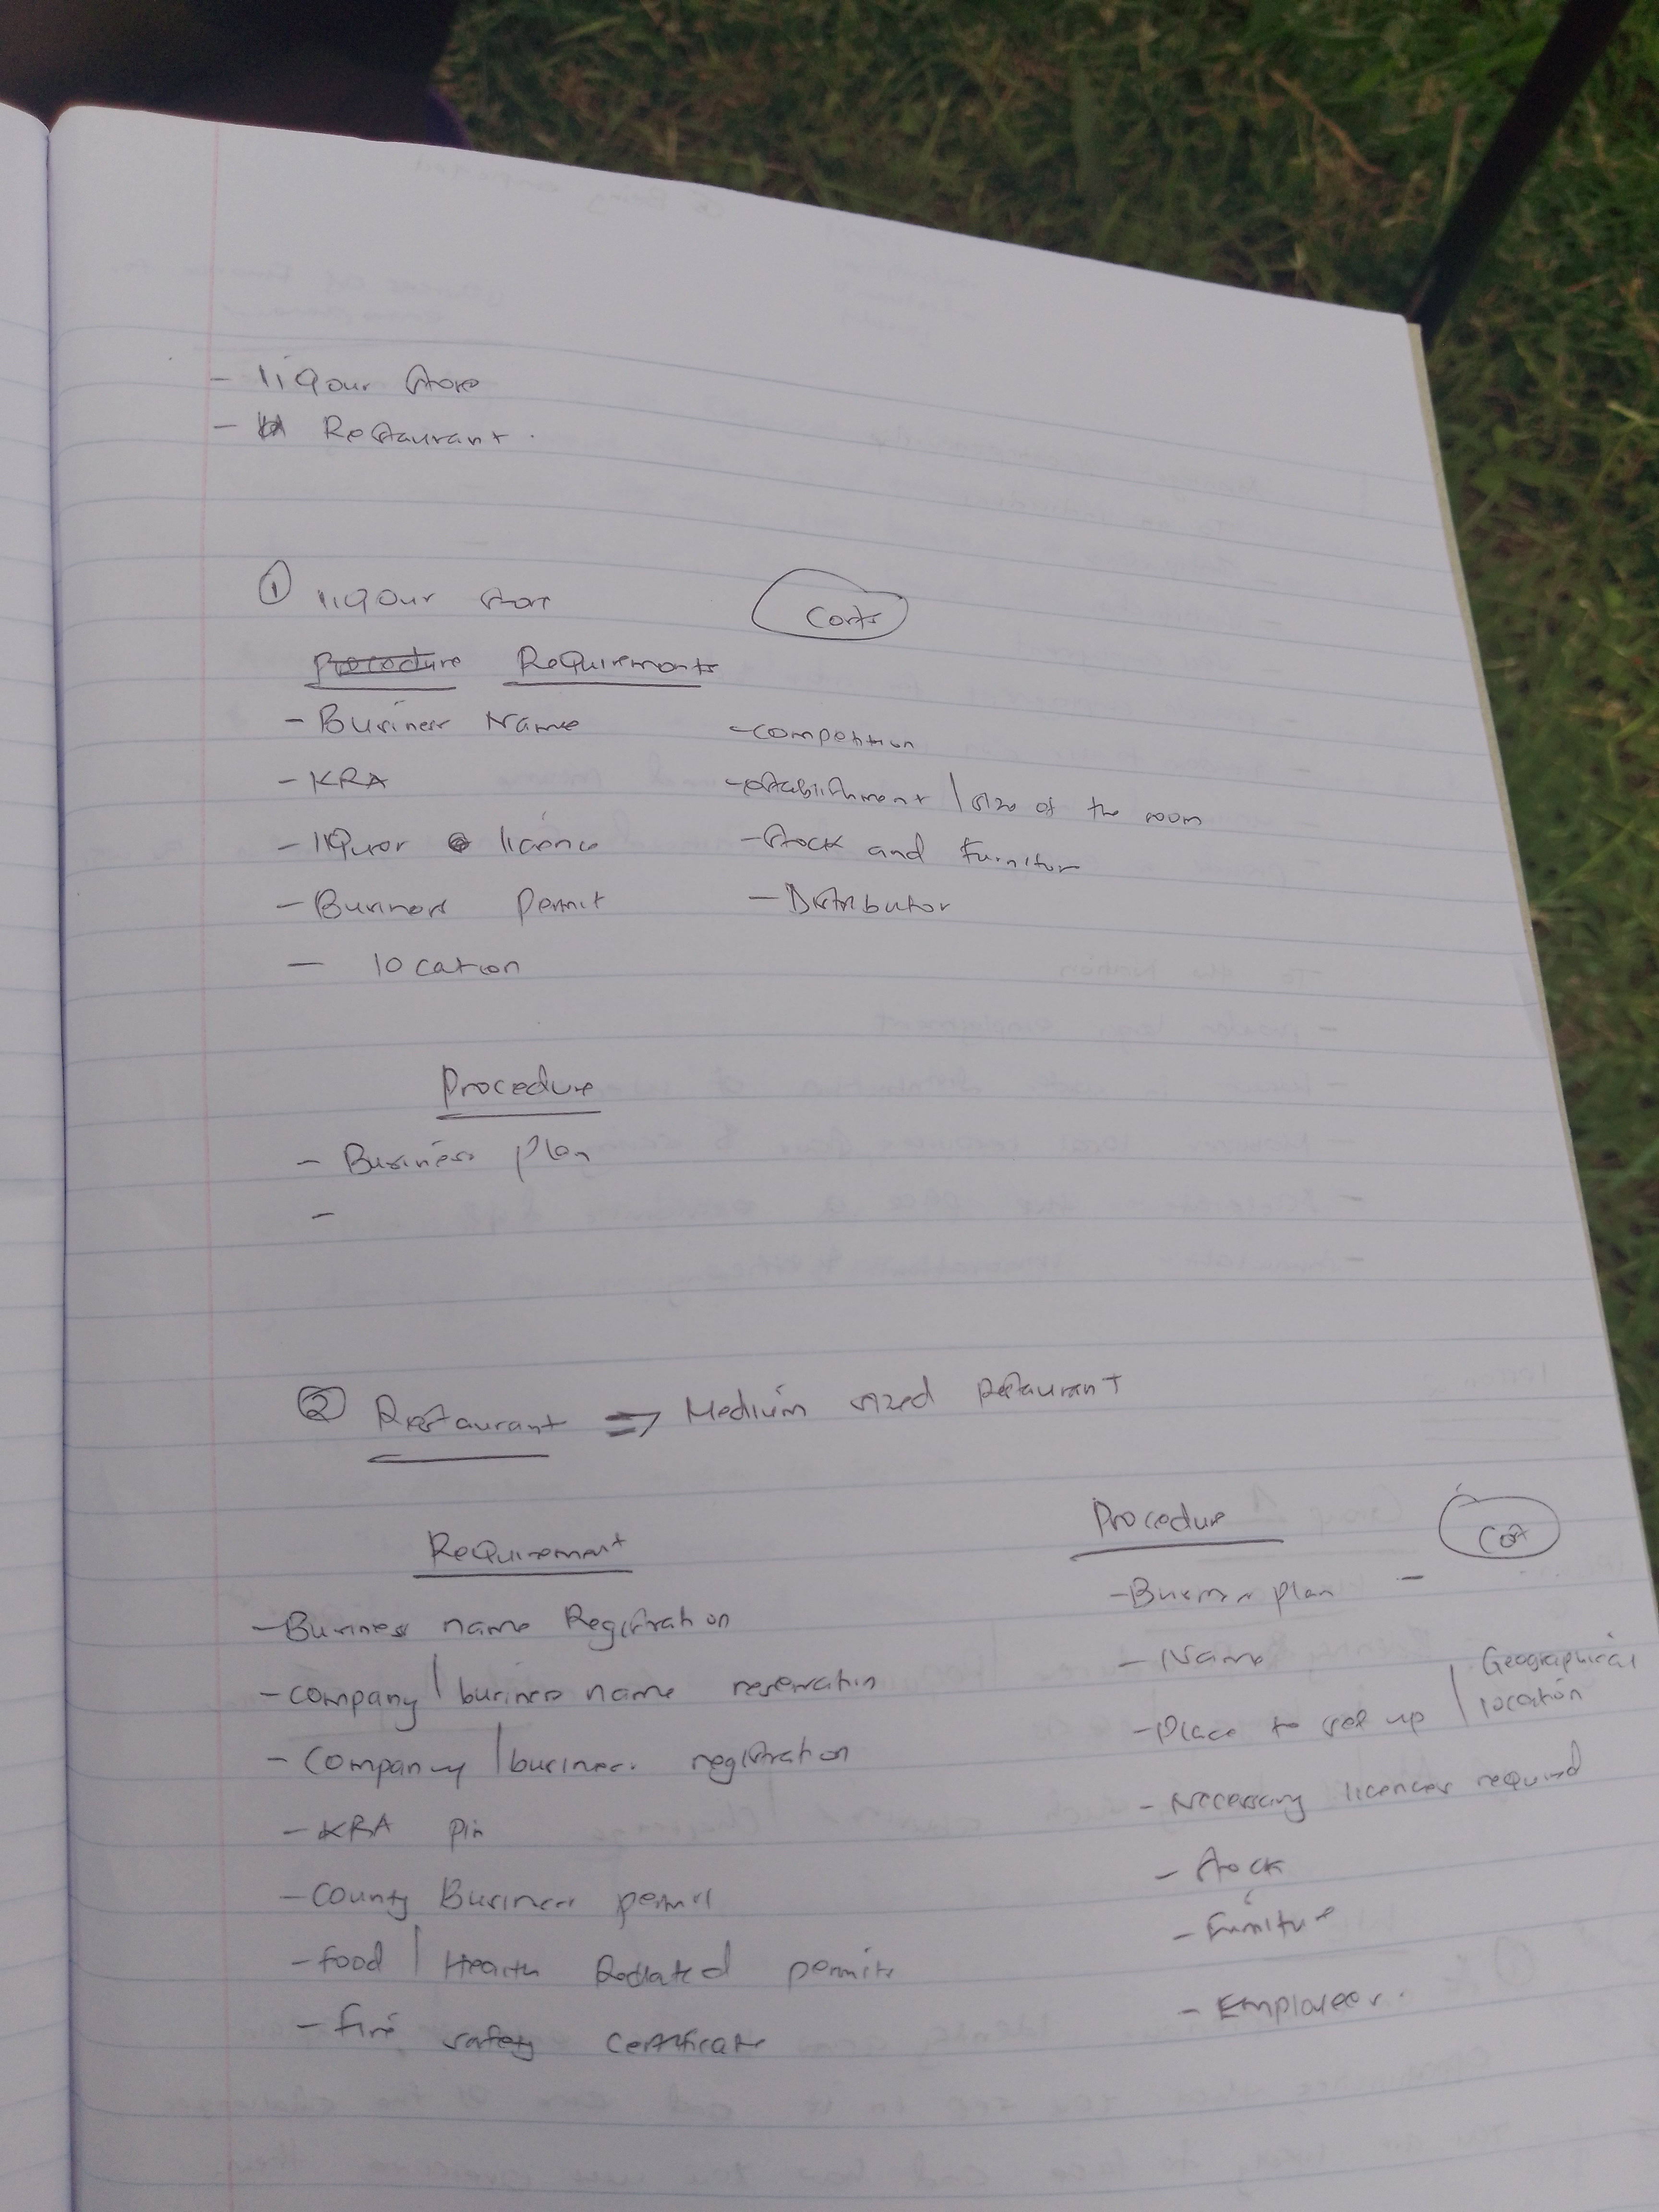 - liqour store
- Restaurant.
① liqour store
Costs
Procedure Requirements
- Business Name
- KRA
- liquor licence
- Business Permit
- location
- competition
- establishment / size of the room
- stock and furnitur
- Distributor
Procedure
- Business plan
-
② Restaurant => Medium sized restaurant
Requirement
- Business name Registration
- company / business name reservation
- Company / business registration
- KRA pin
- County Business permit
- food / Health Related permits
- fire safety certificate
Procedure
- Business plan -
- Name
- Place to set up / Geographical location
- Necessary licences required
- stock
- Furniture
- Employees.
Cost